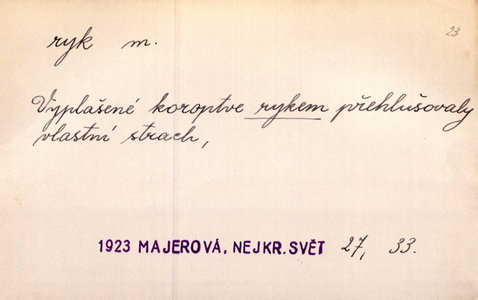 ryk m.
23
Vyplašené koroptve rykem přehlušovaly
vlastní strach,
1923 MAJEROVÁ, NEJKR. SVĚT 27, 33.